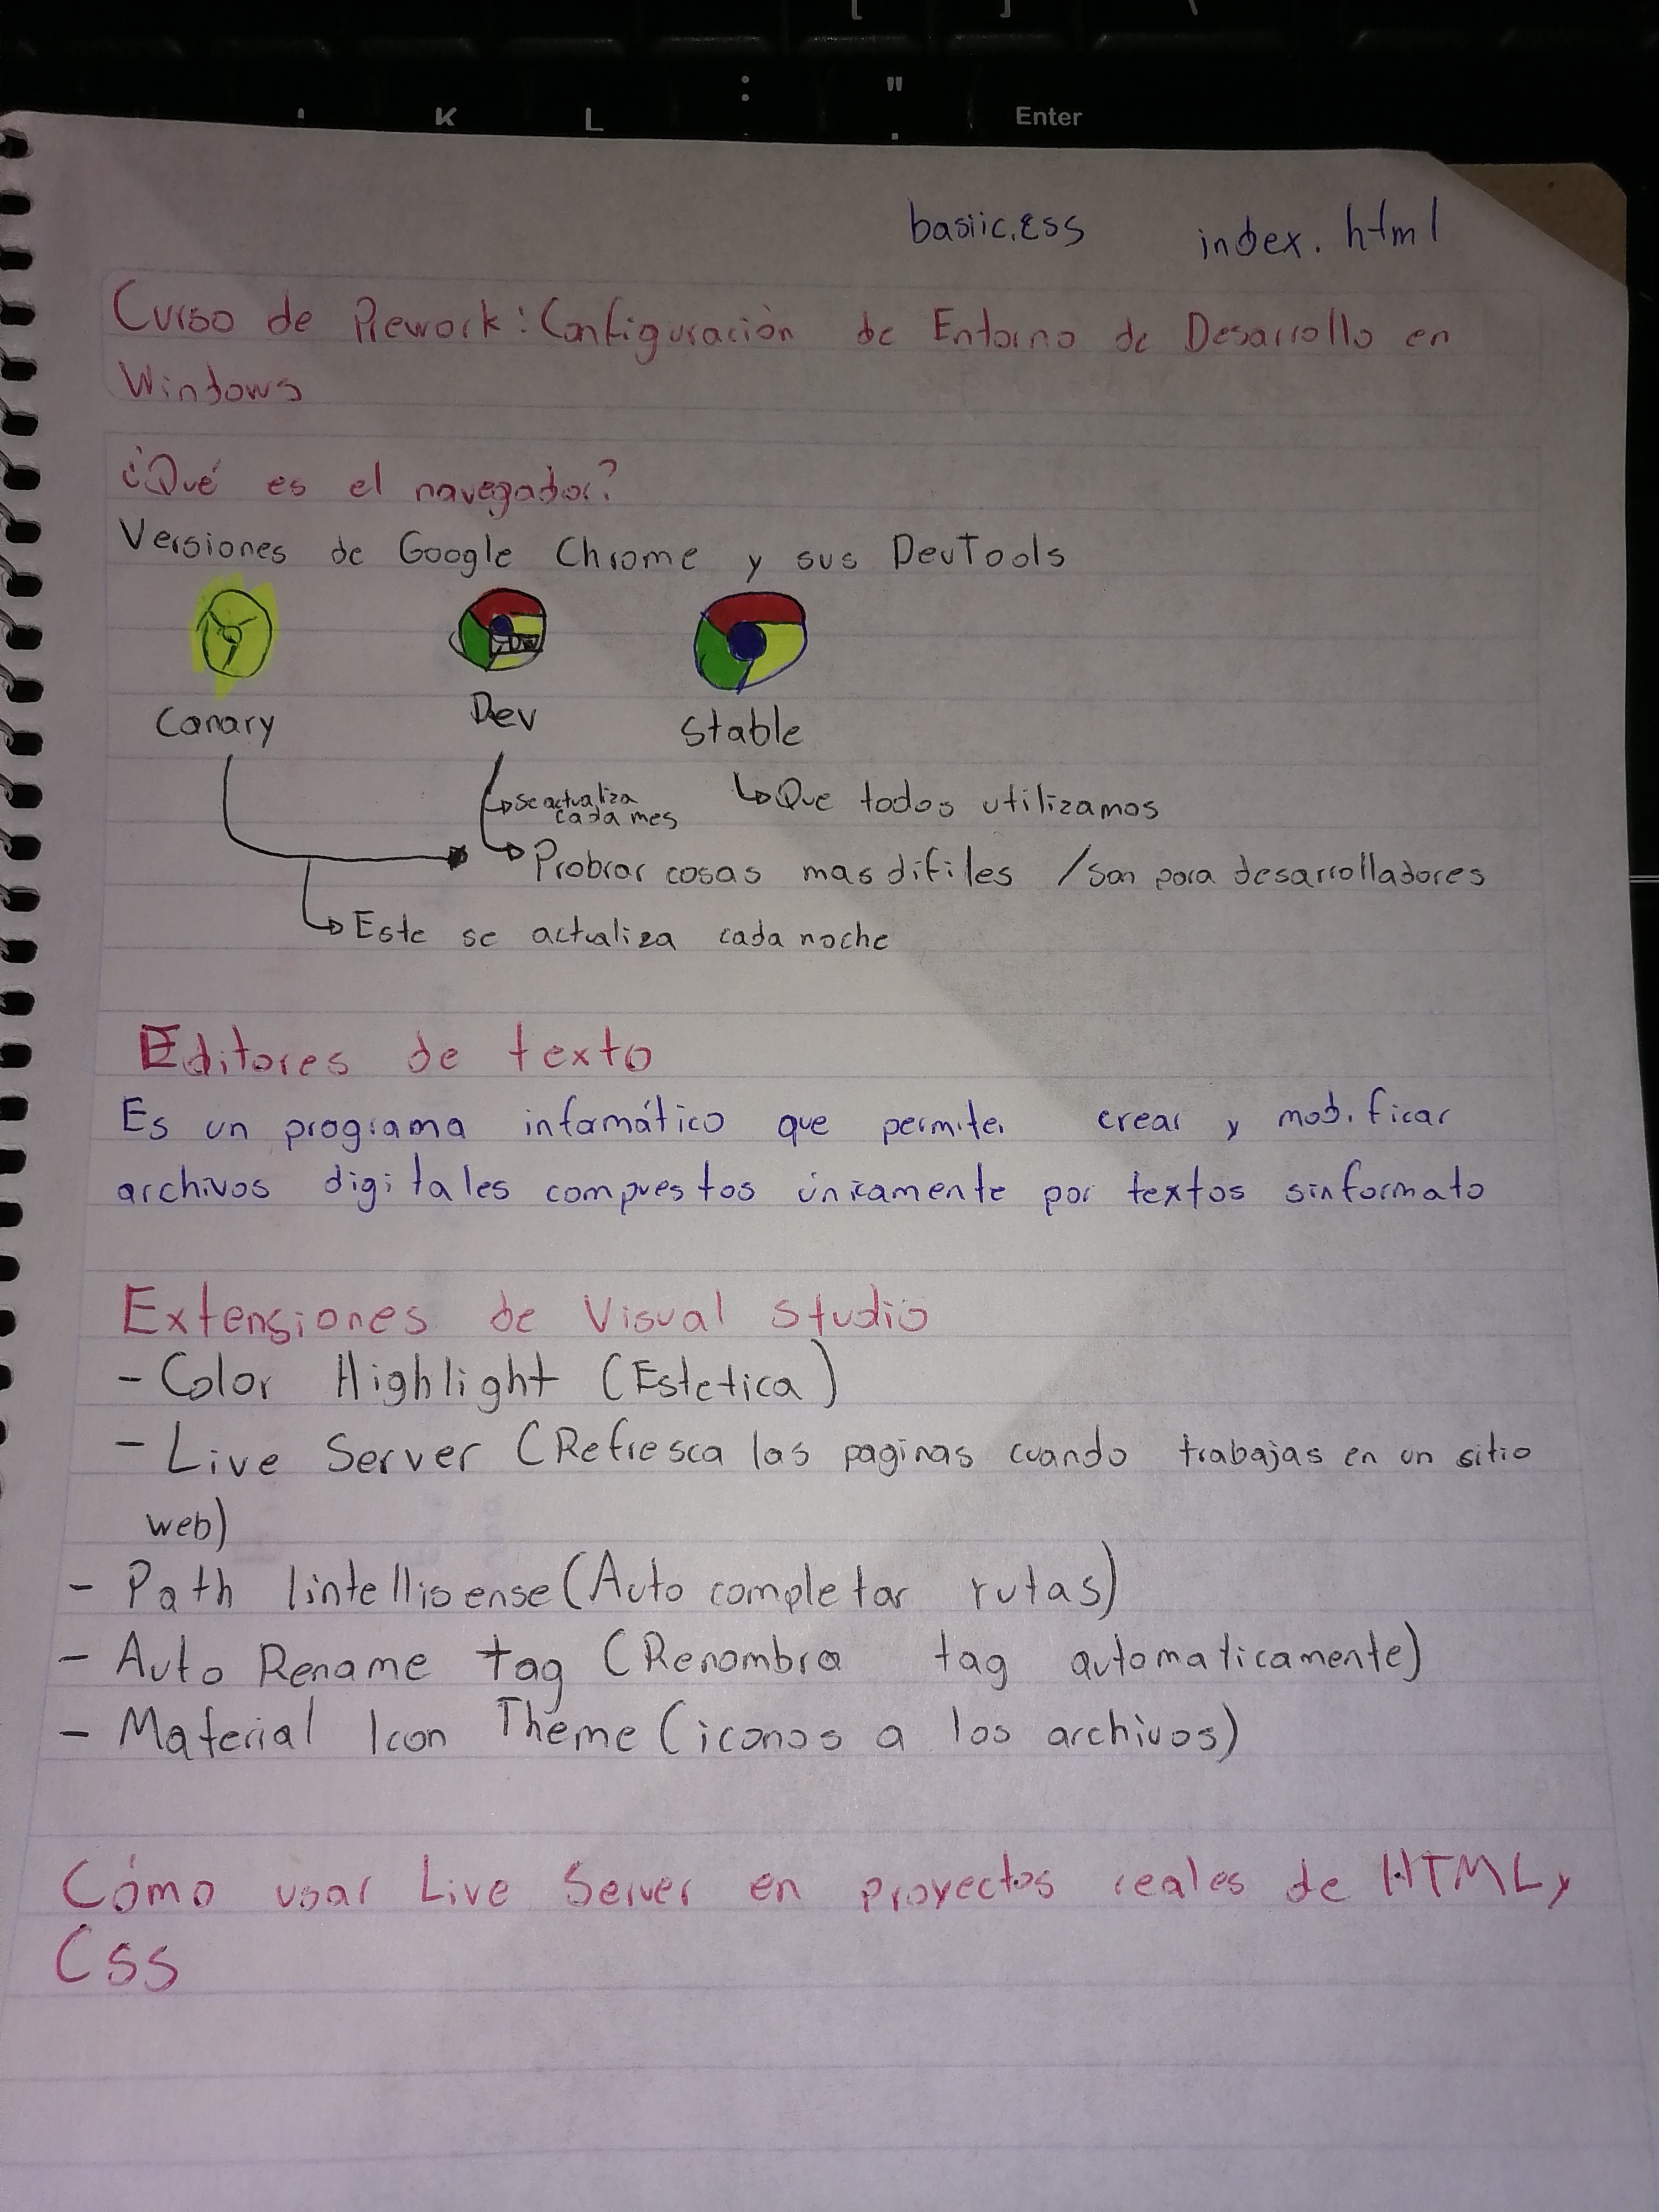 K L : " Enter
basiic.css index.html
Curso de Prework: Configuración de Entorno de Desarrollo en
Windows
¿Qué es el navegador?
Versiones de Google Chrome y sus DevTools
Canary Dev Stable
Se actualiza
cada mes
Que todos utilizamos
Probrar cosas mas difiles / son para desarrolladores
Este se actualiza cada noche
Editores de texto
Es un programa informático que permite crear y modificar
archivos digitales compuestos únicamente por textos sin formato
Extensiones de Visual Studio
- Color Highlight (Estetica)
- Live Server (Refresca las paginas cuando trabajas en un sitio
web)
- Path Iintellisense (Auto completar rutas)
- Auto Rename tag (Renombra tag automaticamente)
- Material Icon Theme (iconos a los archivos)
Cómo usar Live Server en proyectos reales de HTML y
CSS